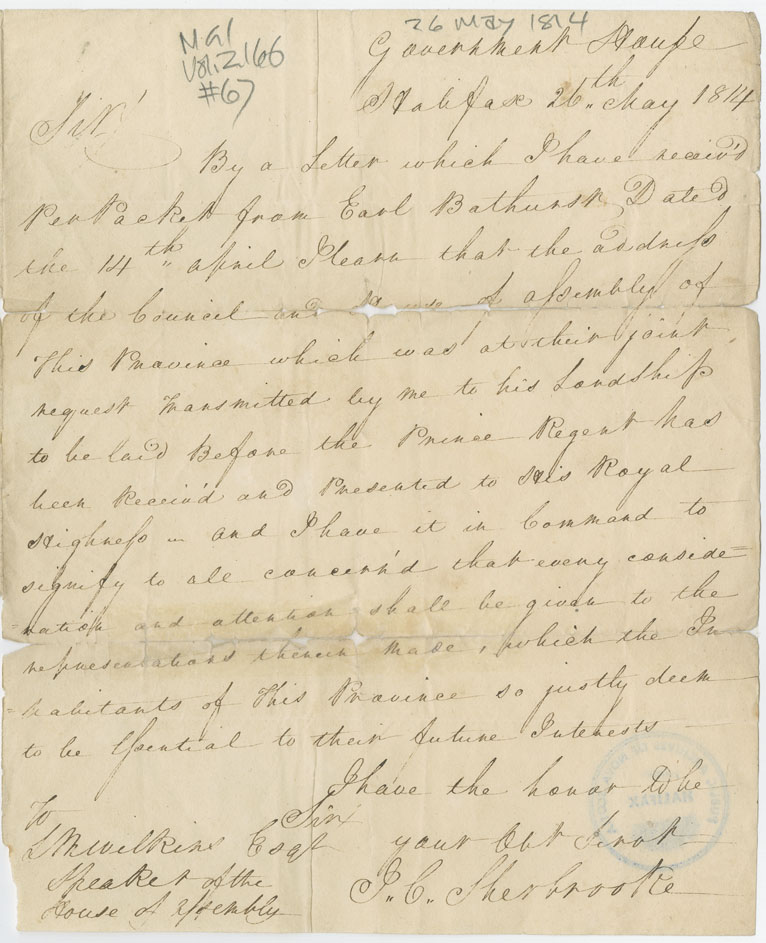 26 May 1814
MG1
Vol. 2166
#67
Government House
Halifax 26th May 1814
Sir
By a Letter which I have receiv'd
Per Packet from Earl Bathurst Dated
the 14th April I learn that the address
of the Council and House of Assembly of
This Province which was at their joint
request transmitted by me to his Lordship
to be laid Before the Prince Regent has
been Receiv'd and Presented to His Royal
Highness — and I have it in Command to
signify to all concern'd that every conside=
=ration and attention shall be given to the
representations therein made, which the In
=habitants of This Province so justly deem
to be Essential to their future Interests
I have the honor to be
Sir
your Obt Servt
J. C. Sherbrooke
To
L M Wilkins Esqr
Speaker of the
House of Assembly
HALIFAX